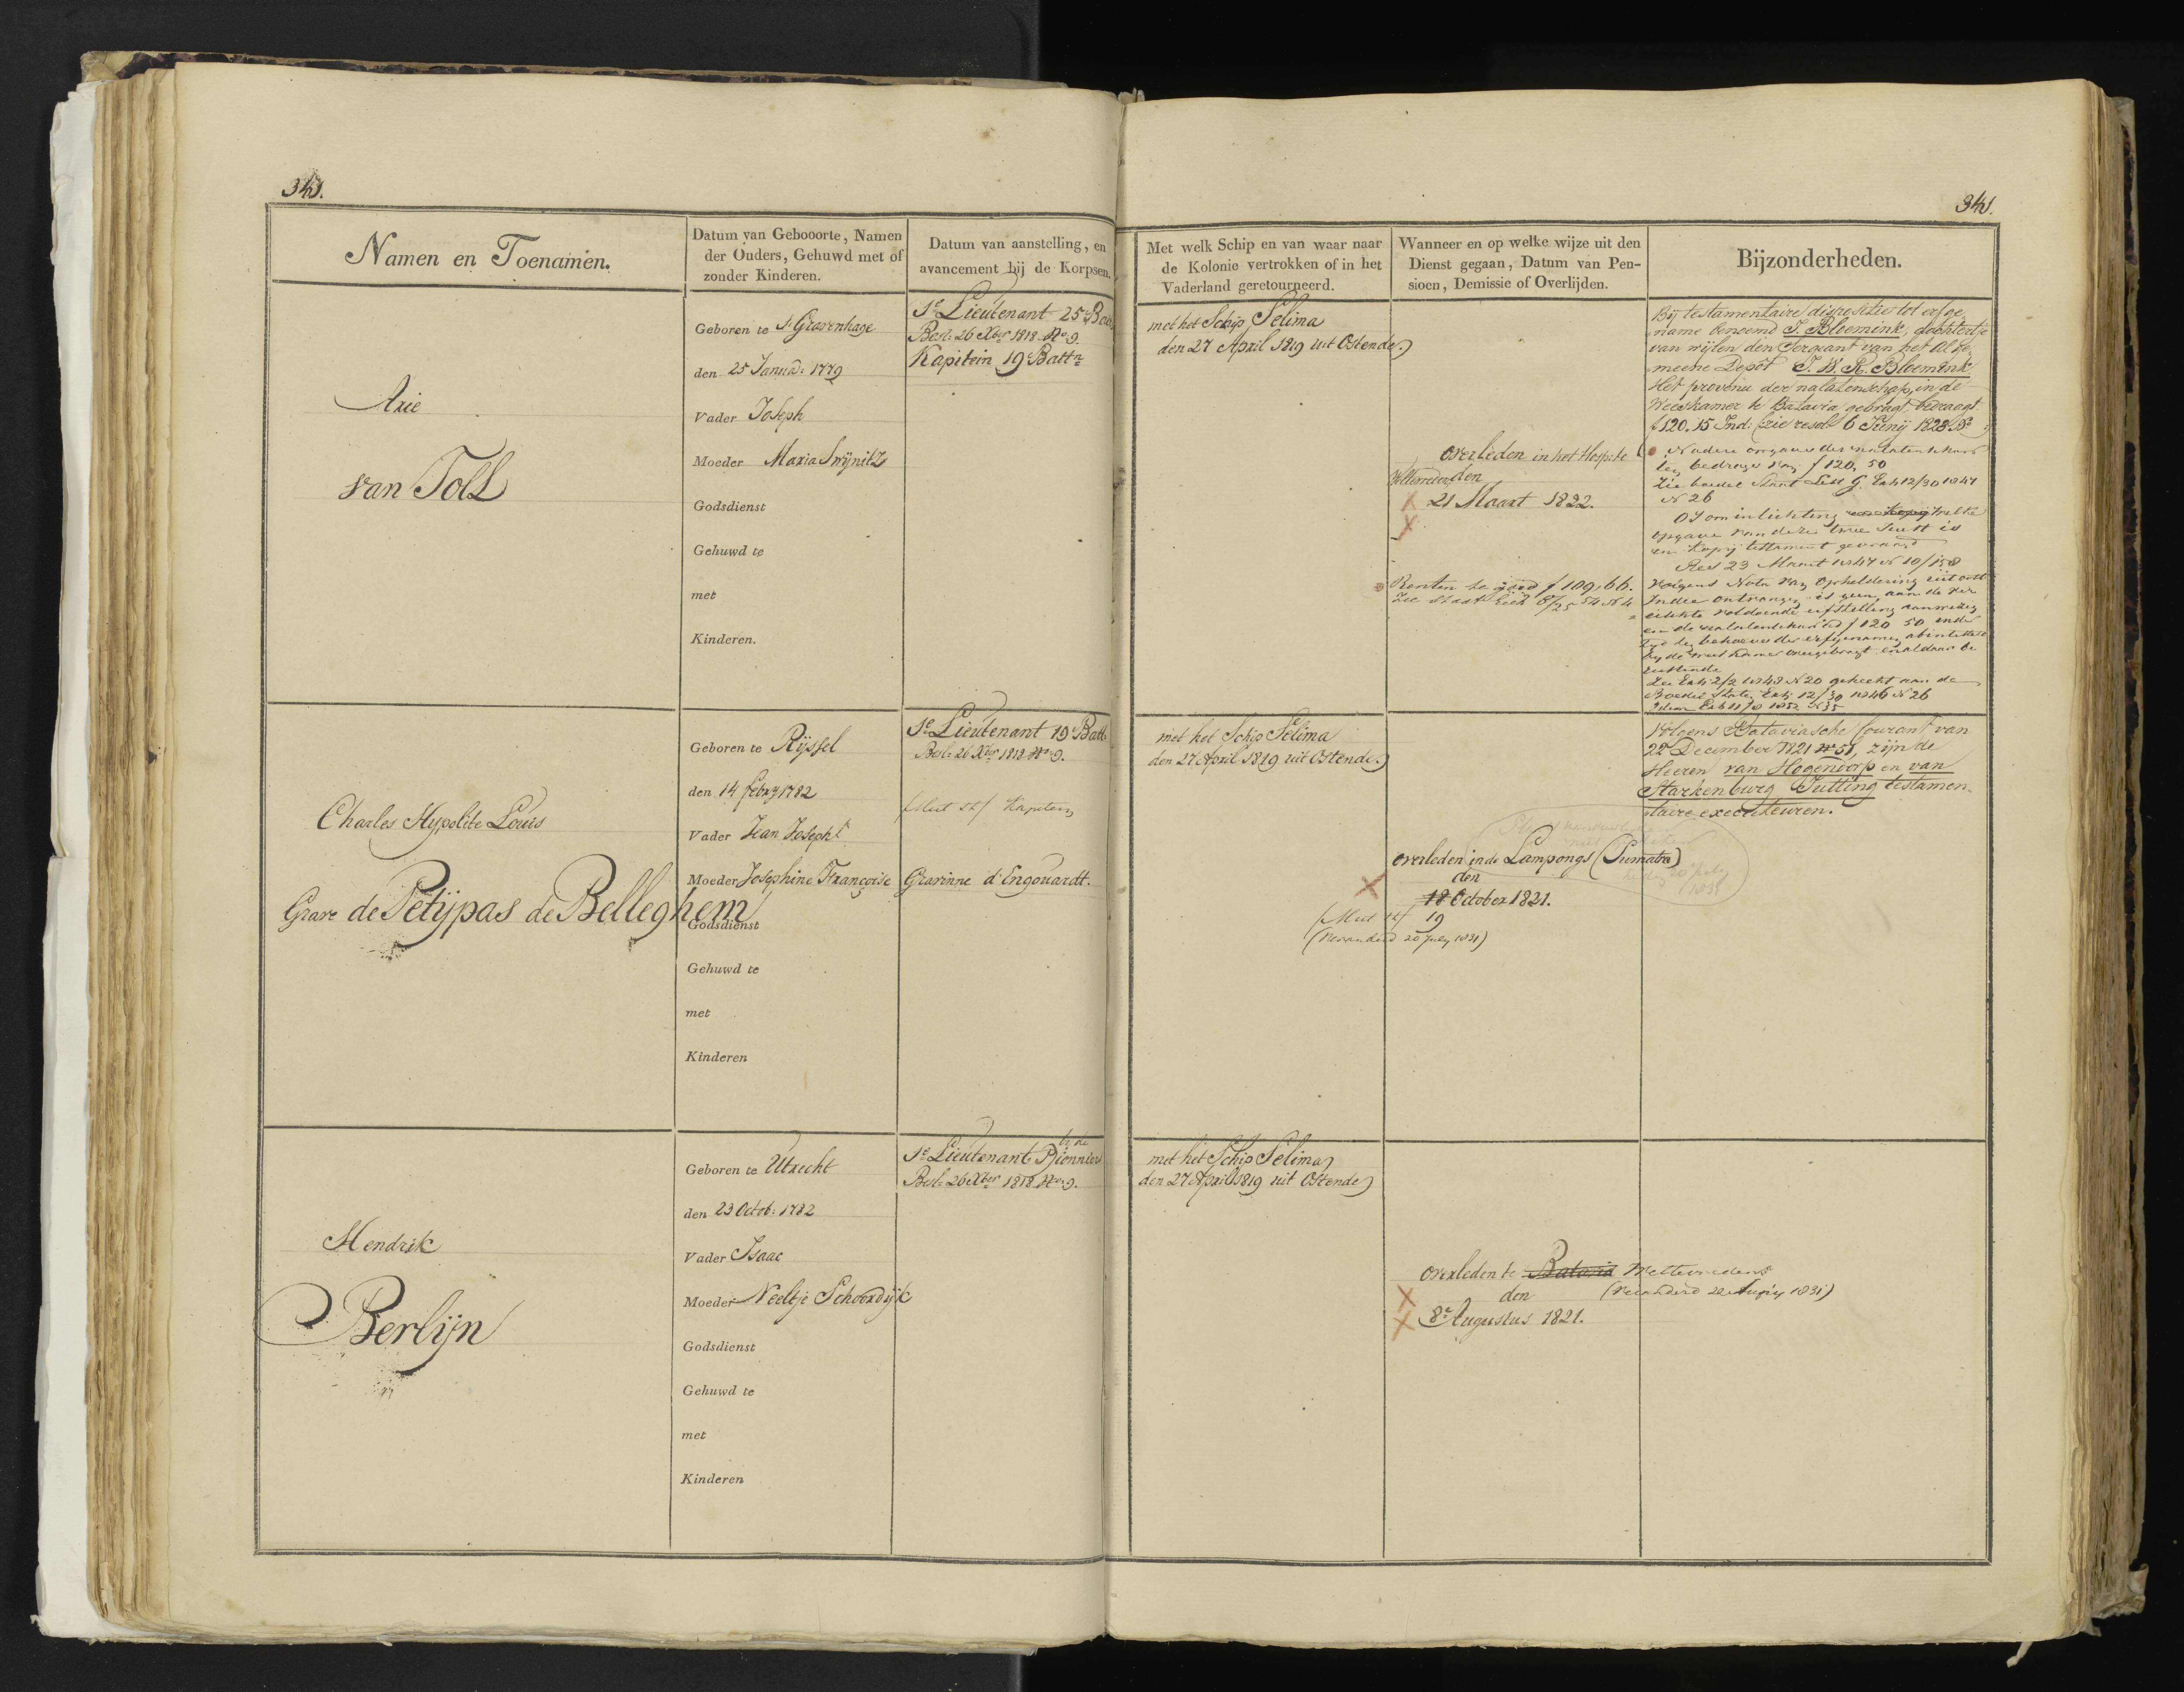 341.
341.
Namen en Toenamen.
Datum van Gebooorte, Namen
der Ouders, Gehuwd met of
zonder Kinderen.
Datum van aanstelling, en
avancement bij de Korpsen.
Met welk Schip en van waar naar
de Kolonie vertrokken of in het
Vaderland geretourneerd.
Wanneer en op welke wijze uit den
Dienst gegaan, Datum van Pen-
sioen, Demissie of Overlijden.
Bijzonderheden.
Arie
van Toll
Geboren te s'Gravenhage
den 25 Januar: 1779
Vader Joseph
Moeder Maria Swijnitz
Godsdienst
Gehuwd te
met
Kinderen.
1e Lieutenant 25e Batt
Besl: 26 Xber 1818 No 9.
Kapitein 19e Battn
met het Schip Selima
den 27 April 1819 uit Ostende
overleden in het Hospit: te
Weltevreden den
21 Maart 1822.
Renten te goed f 109,66.
Zie staat Exh 8/25 54 N 4
Bij testamentaire dispositie tot erfge
name benoemd J. Bloemink, dochtertje
van wijlen den Sergeant van het Alge
meene Depôt J. W. R. Bloemink
Het provenu der nalatenschap, in de
Weeskamer te Batavia gebragt, bedraagt
f 120.15 Ind: (zie resol: 6 Junij 1828 No )
Nadere opgave der nalatenschap
bedrage van f 120,50
Zie boedel Staat Lett G. Exh 12/30 1847
N 26
Of om inlichting welke
opgave van deze twee juist is
en kopij testament gevraagd
Res 23 Maart 1847 N 10/158
Volgens Nota van Opheldering uit oost
Indie ontvangen is geen aan de ver
eischte voldoende erfstelling aanwezig
en de nalatenschap ad f 120 50 onder
behoeve der erfgenamen abintestato
bij de weeskamer overgebragt en aldaar be
rustende
Zie Exh 2/2 1848 N 20 gehecht aan de
Boedel Staten Exh 12/30 1846 N 26
Idem Exh 11/8 1852 N 35
Charles Hypolite Louis
Grave de Petijpas de Belleghem
Geboren te Rijssel
den 14 Febrij 1782
Vader Jean Joseph
Moeder Josephine Françoise Gravinne d'Engouardt.
Godsdienst
Gehuwd te
met
Kinderen
1e Lieutenant 19e Batt:
Besl: 26 Xber 1818 No 9.
Kapitein
met het Schip Selima
den 27 April 1819 uit Ostende
overleden in de Lampongs (Sumatra)
den
18 October 1821.
19
(Veranderd 20 July 1831)
Volgens Bataviasche Courant van
22 December 1821 No 51, zijn de
Heeren van Hogendorp en van
Starkenburg Tutting testamen-
taire executeuren.
Hendrik
Berlijn
Geboren te Utrecht
den 23 Octob: 1782
Vader Isaac
Moeder Neeltje Schoordijk
Godsdienst
Gehuwd te
met
Kinderen
1e Lieutenant bij de Pionniers
Besl: 26 Xber 1818 No 9.
met het Schip Selima
den 27 April 1819 uit Ostende
overleden te Batavia Weltevreden
den (veranderd 20 1831)
8e Augustus 1821.